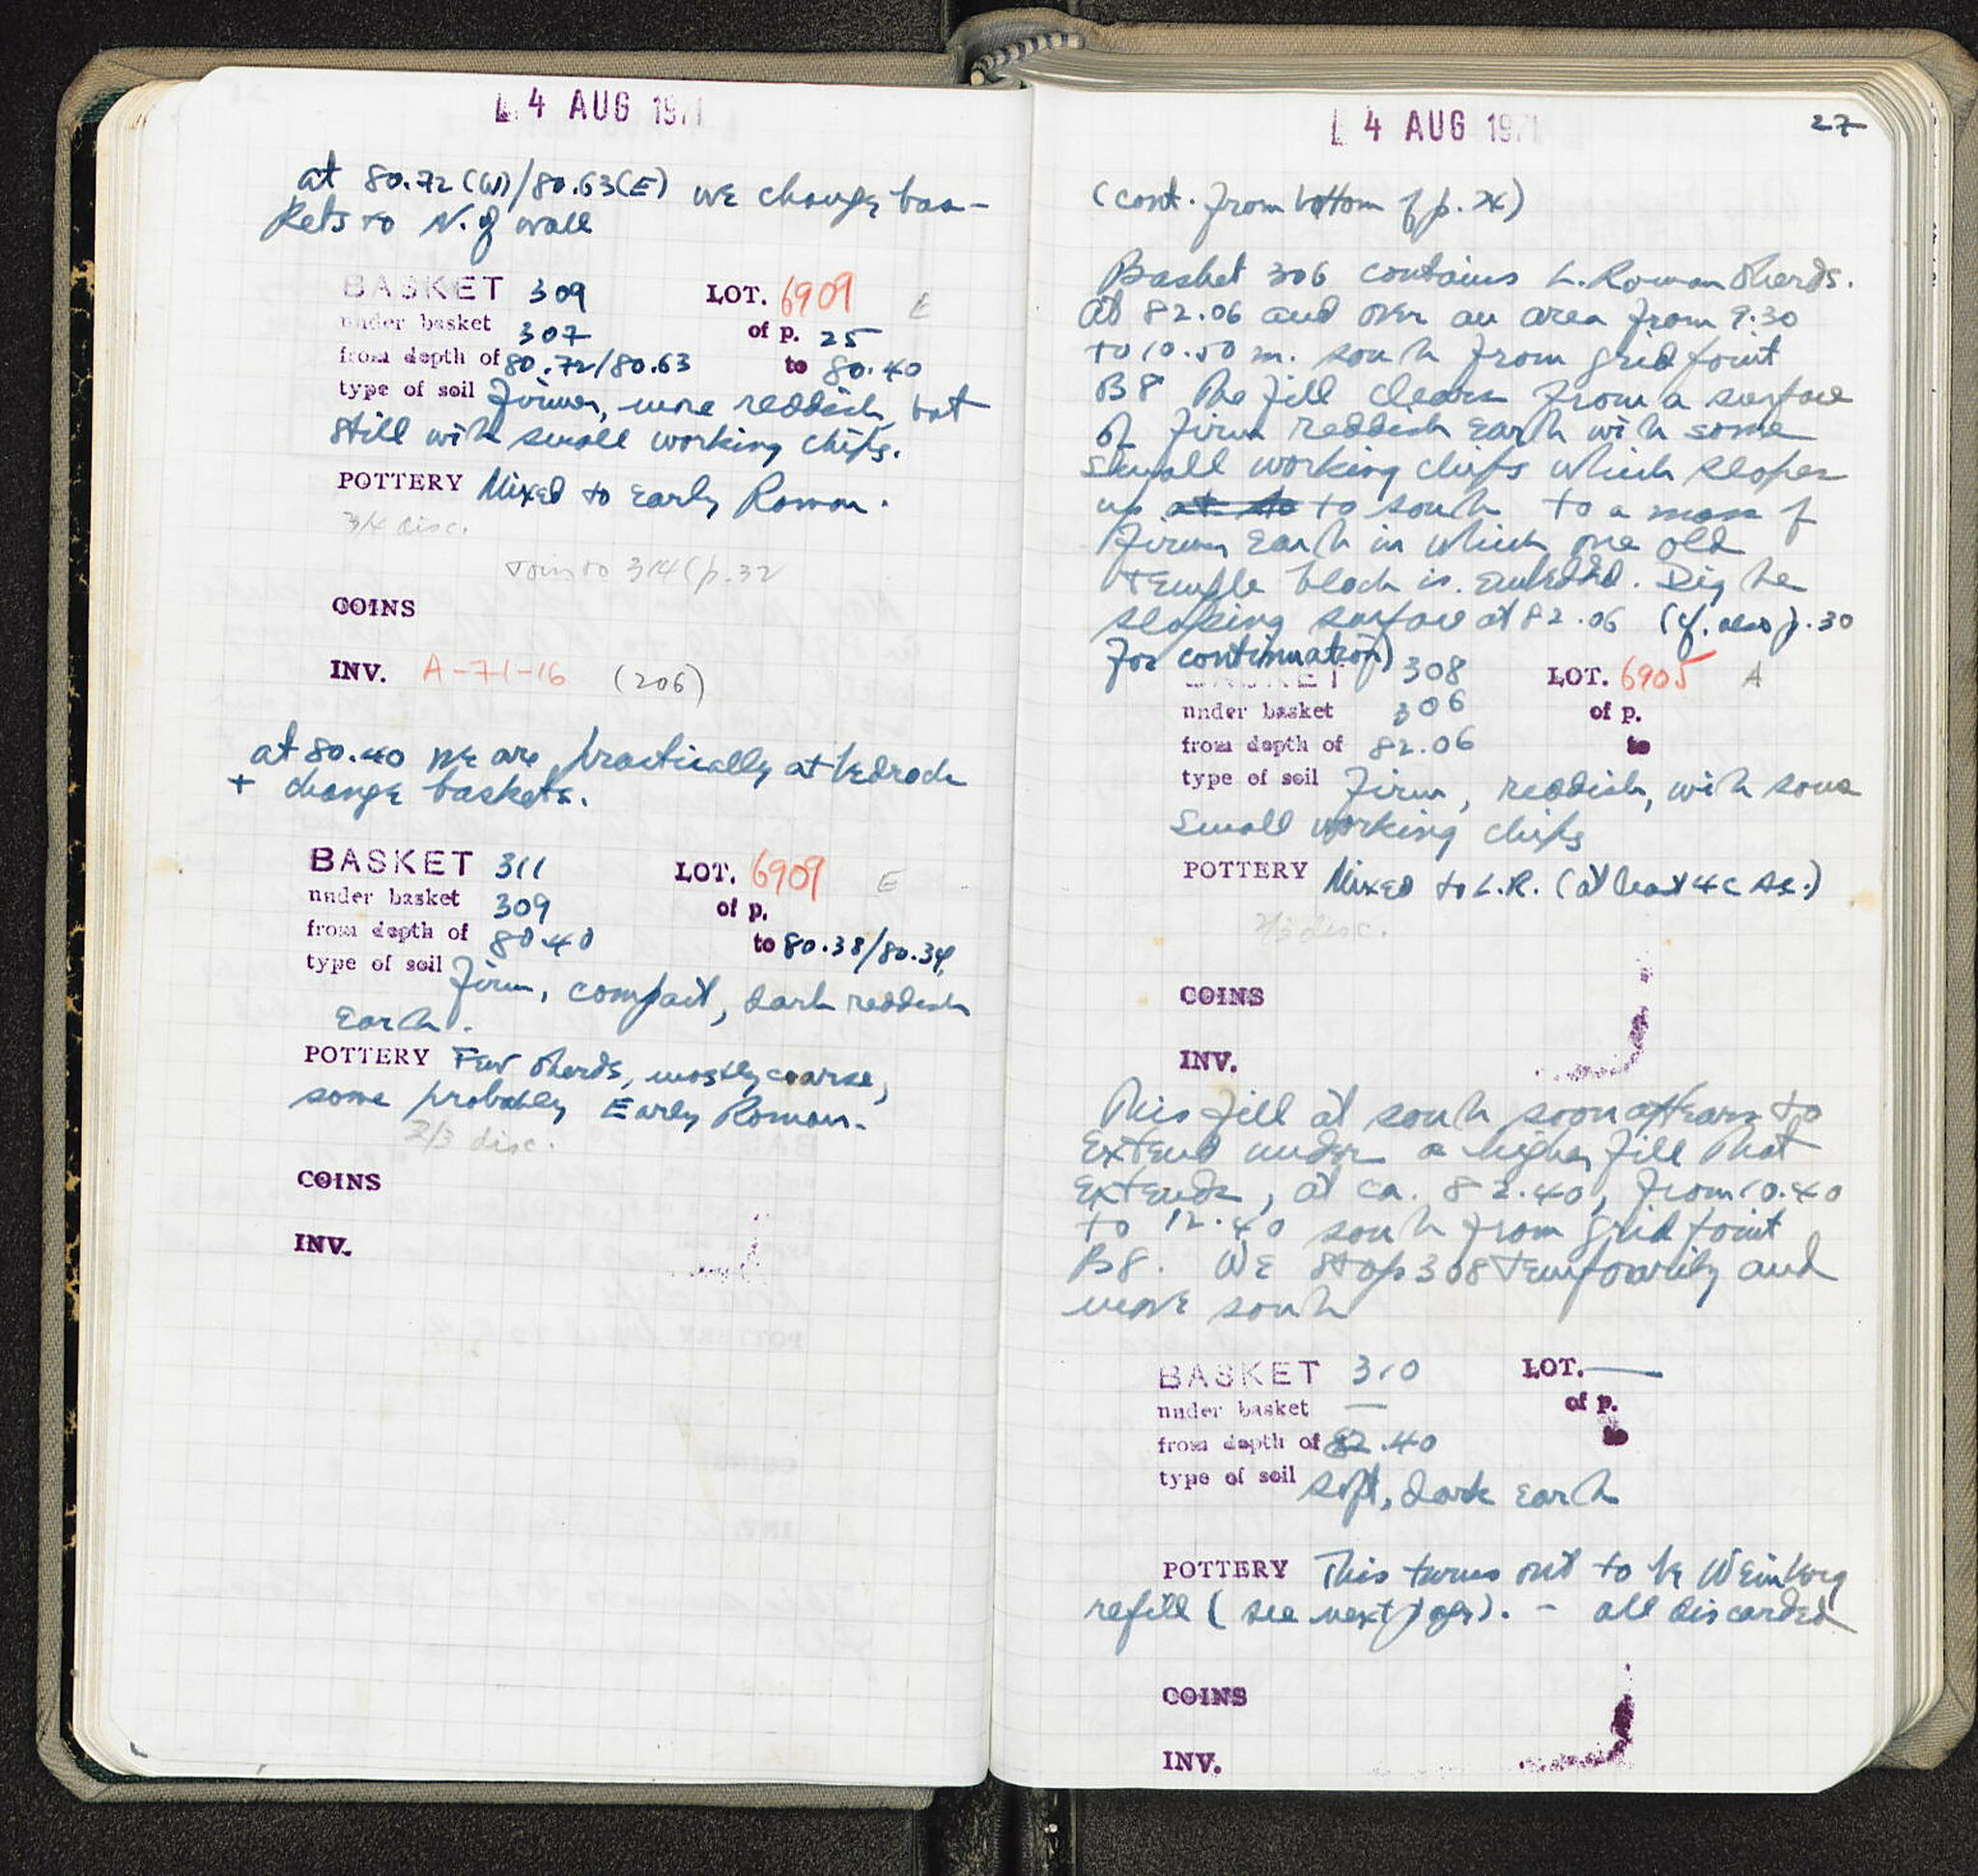 4 AUG 1971
at 80.72 (W)/80.63(E) we change bas-
kets to N. of wall
BASKET 309 LOT. 6909 E
under basket 307 of p. 25
from depth of 80.72/80.63 to 80.40
type of soil Firmer, more reddish, but
still with small working chips.
POTTERY Mixed to Early Roman.
3/4 disc.
Join to 314 (p. 32
COINS
INV. A-71-16 (206)
at 80.40 we are practically at bedrock
+ change baskets.
BASKET 311 LOT. 6909 E
under basket 309 of p.
from depth of 80.40 to 80.38/80.34
type of soil Firm, compact, dark reddish
Earth.
POTTERY Few sherds, mostly coarse,
some probably Early Roman.
2/3 disc.
COINS
INV.
4 AUG 1971 27
(cont. from bottom of p. 24)
Basket 306 contains L. Roman sherds.
At 82.06 and over an area from 9.30
to 10.50 m. south from grid point
B8 the fill clears from a surface
of firm reddish earth with some
small working chips which slopes
up at to to south to a mass of
firmer earth in which one old
temple block is embedded. Dig the
sloping surface at 82.06 (cf. also p. 30
for continuation)
BASKET 308 LOT. 6905 A
under basket 306 of p.
from depth of 82.06 to
type of soil Firm, reddish, with some
small working chips
POTTERY Mixed to L.R. (at least 4 c AC.)
2/3 disc.
COINS
INV.
This fill at south soon appears to
extend under a higher fill that
extends, at ca. 82.40, from 10.40
to 12.40 south from grid point
B8. We stop 308 temporarily and
move south
BASKET 310 LOT. —
under basket — of p.
from depth of 82.40 to
type of soil soft, dark earth
POTTERY This turns out to be Weinberg
refill (see next page). - all discarded
COINS
INV.